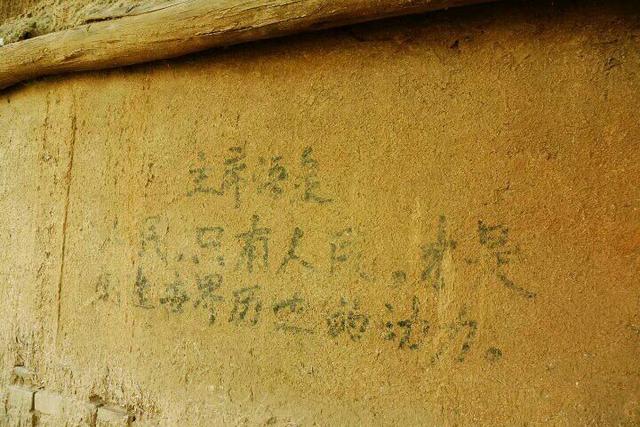 主席语录
人民,只有人民,才是
创造世界历史的动力。